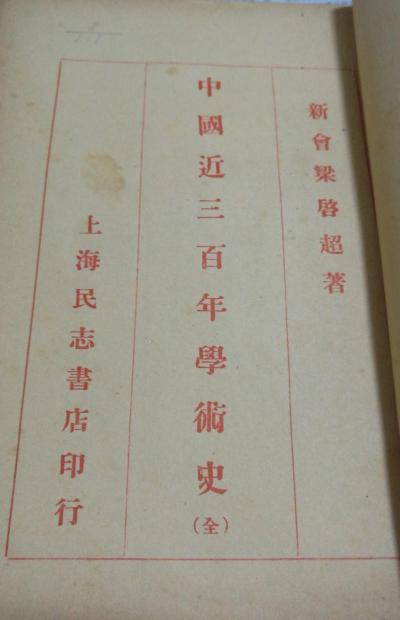 新會梁啓超著
中國近三百年學術史
(全)
上海民志書店印行